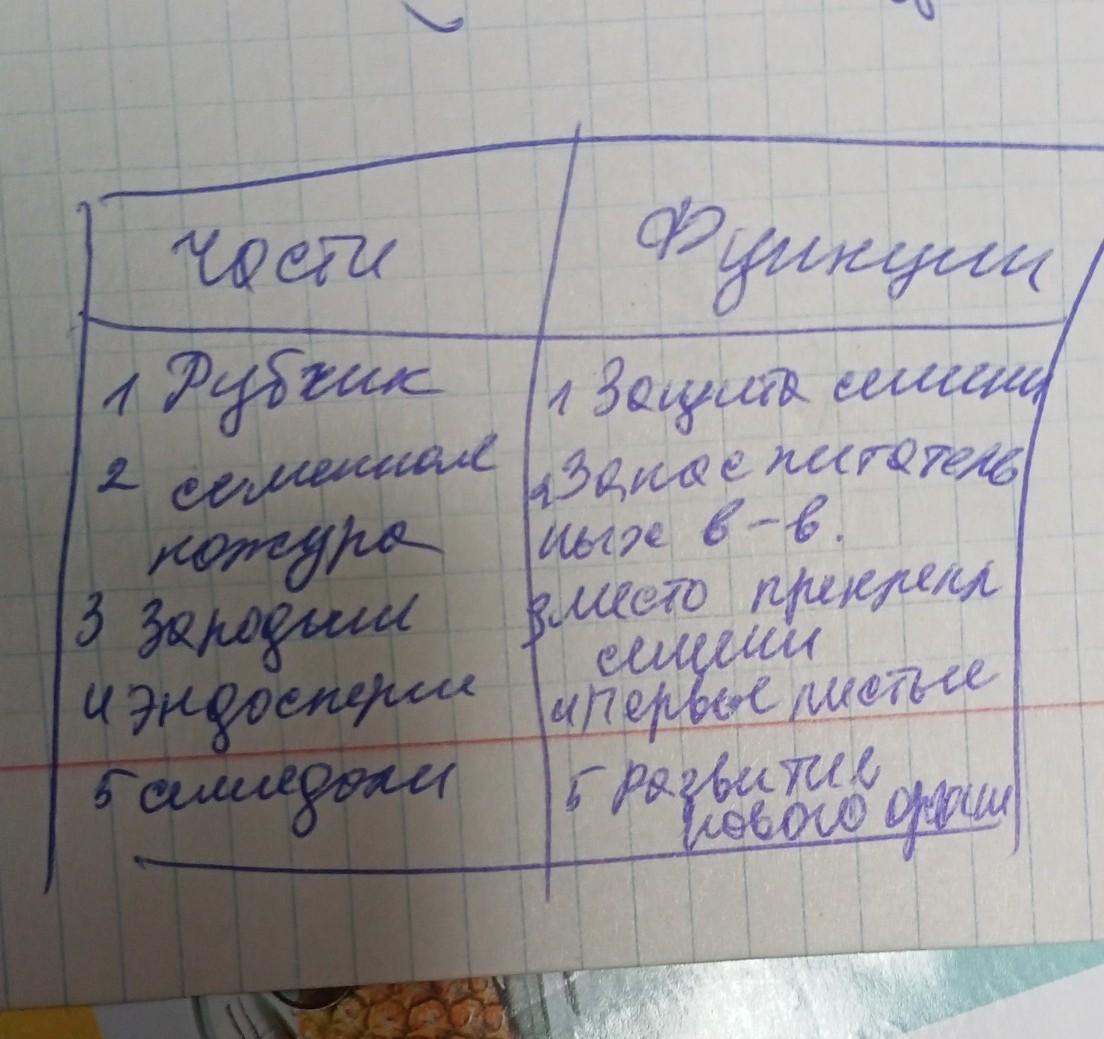 Части Функции
1 Рубчик
2 семенная
кожура
3 Зародыш
4 Эндосперм
5 семядоли
1 Защита семени
2 Запас питатель
ных в-в.
3 место прикрепл
семени
4 Первые листья
5 развитие
нового органи